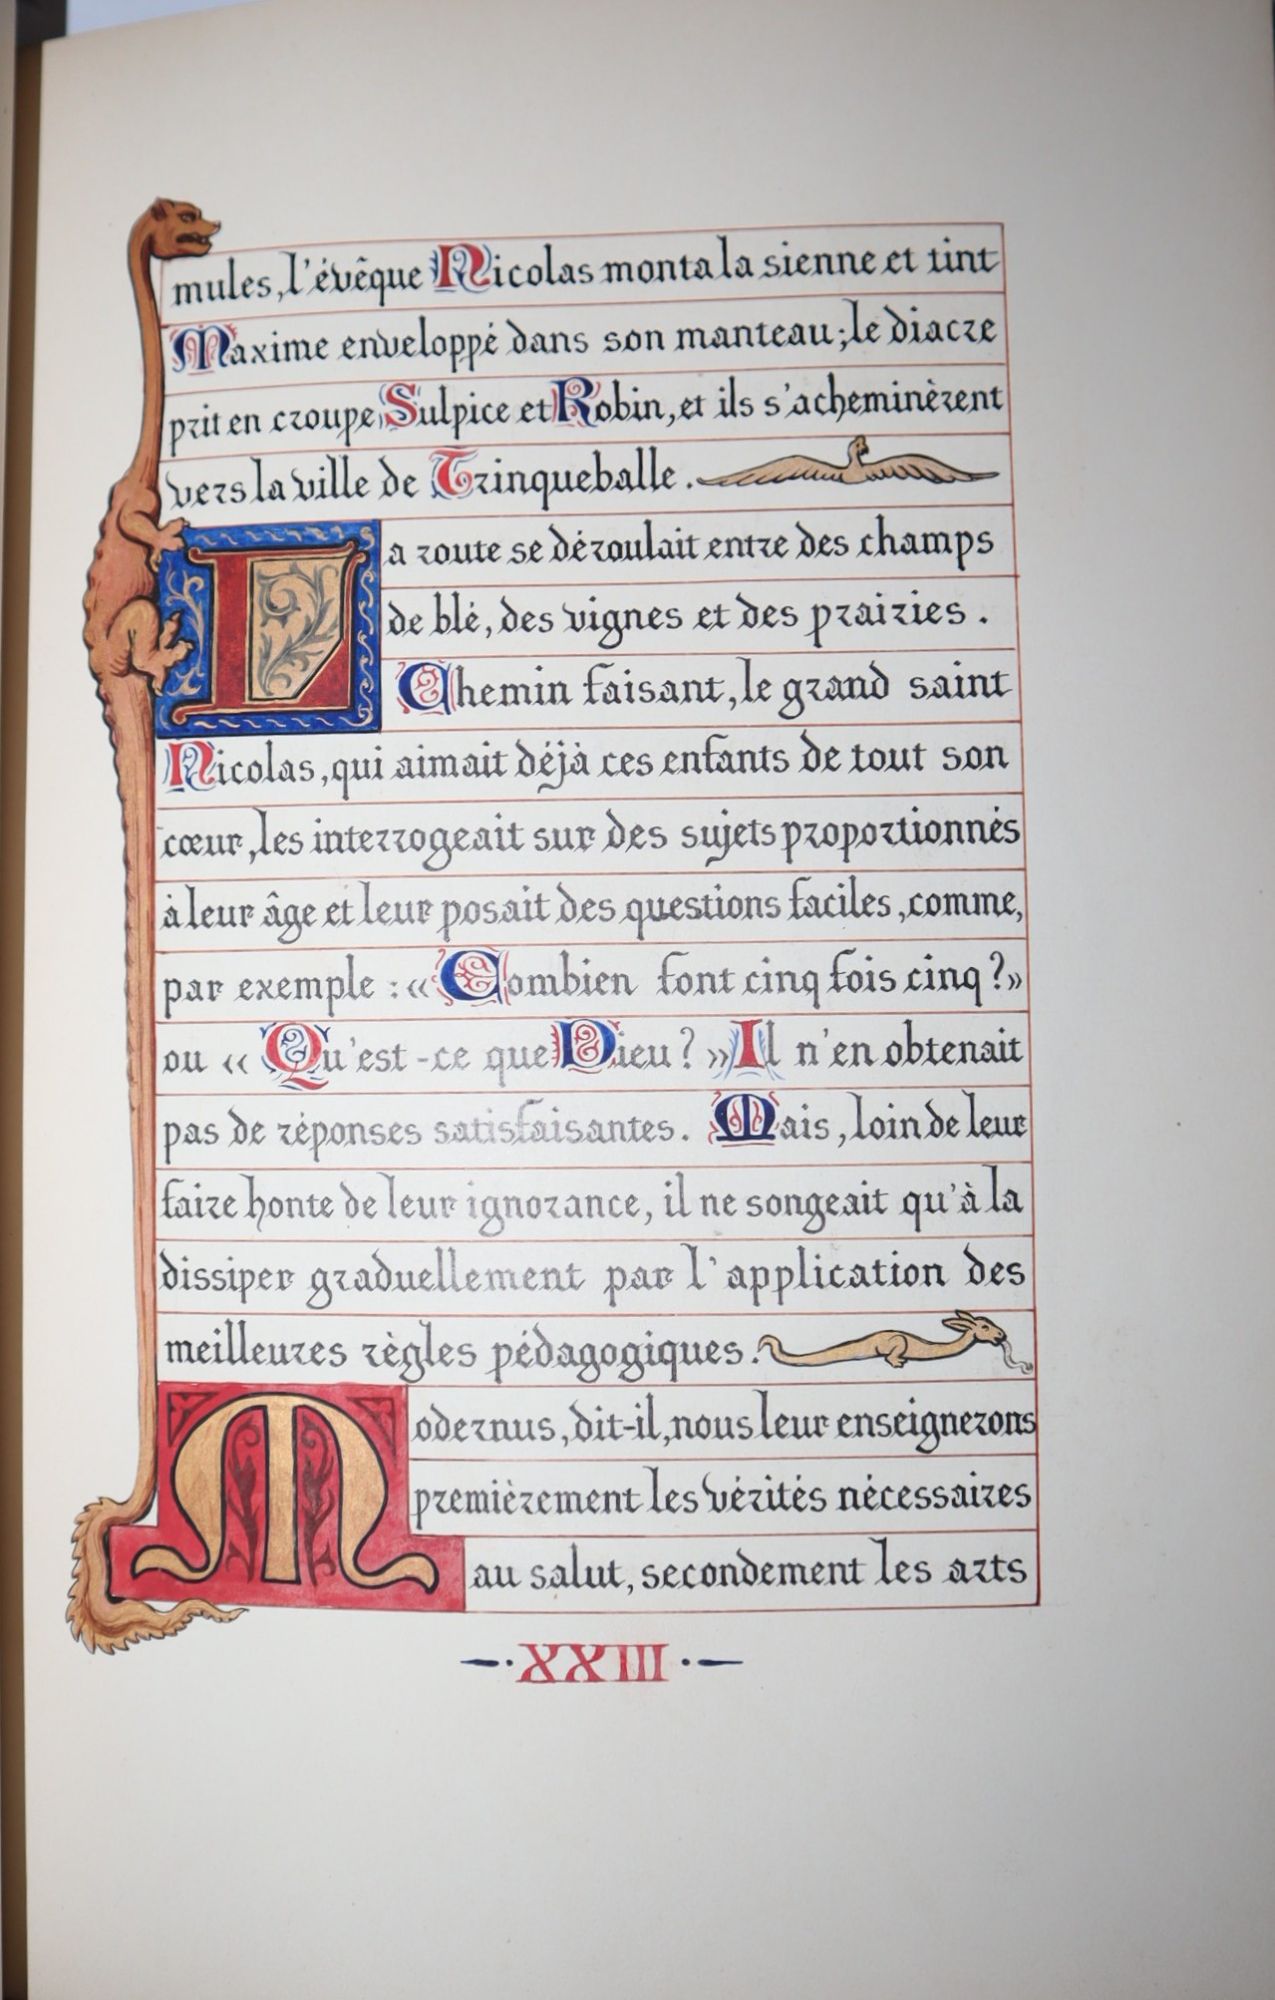 mules, l'évêque Nicolas monta la sienne et tint
Maxime enveloppé dans son manteau; le diacre
prit en croupe Sulpice et Robin, et ils s'acheminèrent
vers la ville de Trinqueballe.
La route se déroulait entre des champs
de blé, des vignes et des prairies.
Chemin faisant, le grand saint
Nicolas, qui aimait déjà ces enfants de tout son
cœur, les interrogeait sur des sujets proportionnés
à leur âge et leur posait des questions faciles, comme,
par exemple : « Combien font cinq fois cinq ? »
ou « Qu'est-ce que Dieu ? » Il n'en obtenait
pas de réponses satisfaisantes. Mais, loin de leur
faire honte de leur ignorance, il ne songeait qu'à la
dissiper graduellement par l'application des
meilleures règles pédagogiques.
Modernus, dit-il, nous leur enseignerons
premièrement les vérités nécessaires
au salut, secondement les arts
XXIII